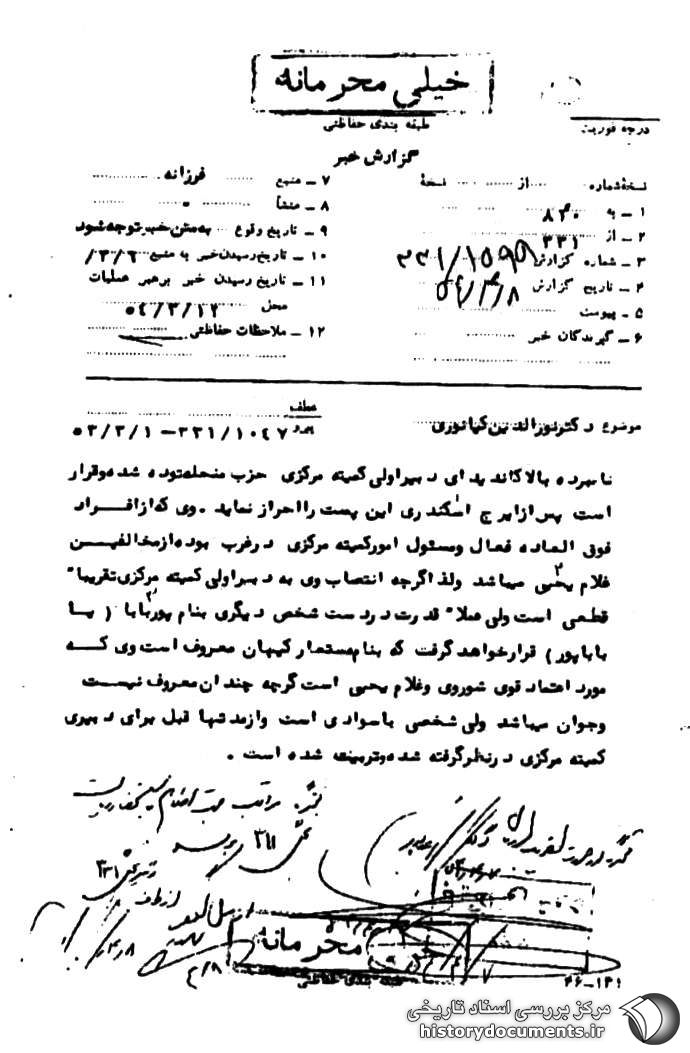 خیلی محرمانه
طبقه بندی حفاظتی
درجه فوریت
گزارش خبر
نسخهٔ شماره از نسخهٔ
۱ ـ به ۸۴۰
۲ ـ از ۳۳۱
۳ ـ شماره گزارش ۳۳۱/۱۵۹۹
۴ ـ تاریخ گزارش ۵۴/۴/۸
۵ ـ پیوست
۶ ـ گیرندگان خبر
۷ ـ منبع فرزانه
۸ ـ منشأ
۹ ـ تاریخ وقوع به متن خبر توجه شود
۱۰ ـ تاریخ رسیدن خبر به منبع
۱۱ ـ تاریخ رسیدن خبر برهبر عملیات
محل ۵۴/۳/۱۲
۱۲ ـ ملاحظات حفاظتی
موضوع دکتر نورالدین کیانوری
عطف
پیرو ۳۳۱/۱۰۴۷ ـ ۵۳/۳/۱
نامبرده بالا کاندیدای دبیر اولی کمیته مرکزی حزب منحله توده شده و قرار
است پس از ایرج اسکندری این پست را احراز نماید . وی که از افراد
فوق الماده فعال و مسئول امور کمیته مرکزی در غرب بوده از مخالفین
غلام یحیی میباشد ولذا گرچه انتصاب وی به دبیر اولی کمیته مرکزی تقریبا"
قطعی است ولی عملا" قدرت در دست شخص دیگری بنام پوربابا ( یا
باباپور ) قرار خواهد گرفت که بنام مستعار کیهان معروف است وی که
مورد اعتماد قوی شوروی و غلام یحیی است گرچه چندان معروف نیست
وجوان میباشد ولی شخصی با سوادی است واز مدتها قبل برای دبیری
کمیته مرکزی در نظر گرفته شده و تربیت شده است .
۳۳۱
محرمانه
طبقه بندی حفاظتی
۲۶ـ۱۳۱
مرکز بررسی اسناد تاریخی
historydocuments.ir